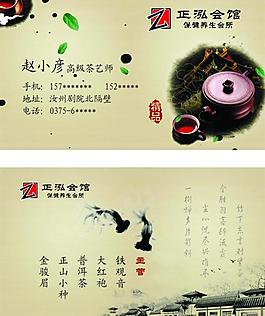 正泓会馆
保健养生会所
赵小彦 高级茶艺师
手机：157******* 152*****
地址：汝州剧院北隔壁
电话：0375-6*****
精品
正泓会馆
保健养生会所
主营
铁观音
大红袍
普洱茶
正山小种
金骏眉